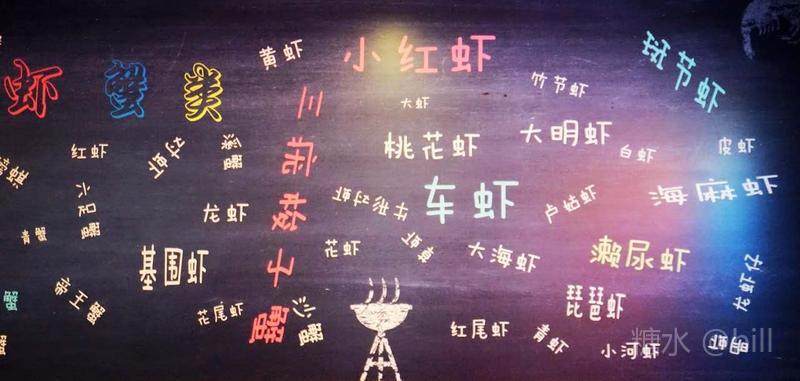 虾 蟹 类
黄虾
小红虾
斑节虾
竹节虾
大虾
三疣梭子蟹
桃花虾
大明虾
白虾
皮虾
红虾
对虾
溪蟹
六足蟹
龙虾
车虾
卢姑虾
海麻虾
青蟹
花虾
大海虾
濑尿虾
基围虾
帝王蟹
蟹
花尾虾
沙蟹
琵琶虾
龙虾仔
红尾虾
青虾
小河虾
糖水 @bill